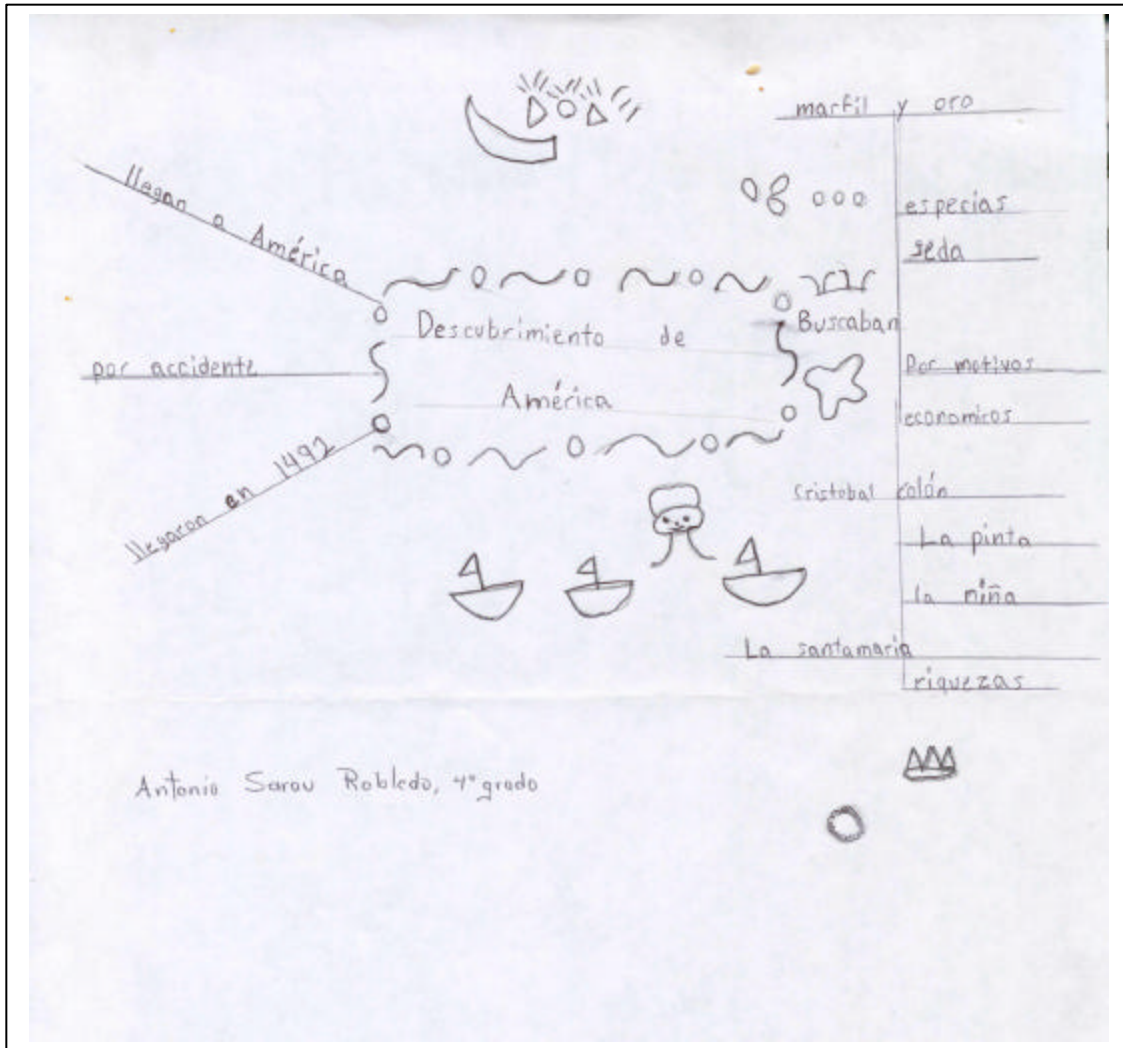 marfil y oro
especias
seda
llegan a América
Descubrimiento de
América
Buscaban
por accidente
llegaron en 1492
Por motivos
economicos
cristobal colón
La pinta
la niña
La santamaria
riquezas
Antonio Robledo, 4° grado